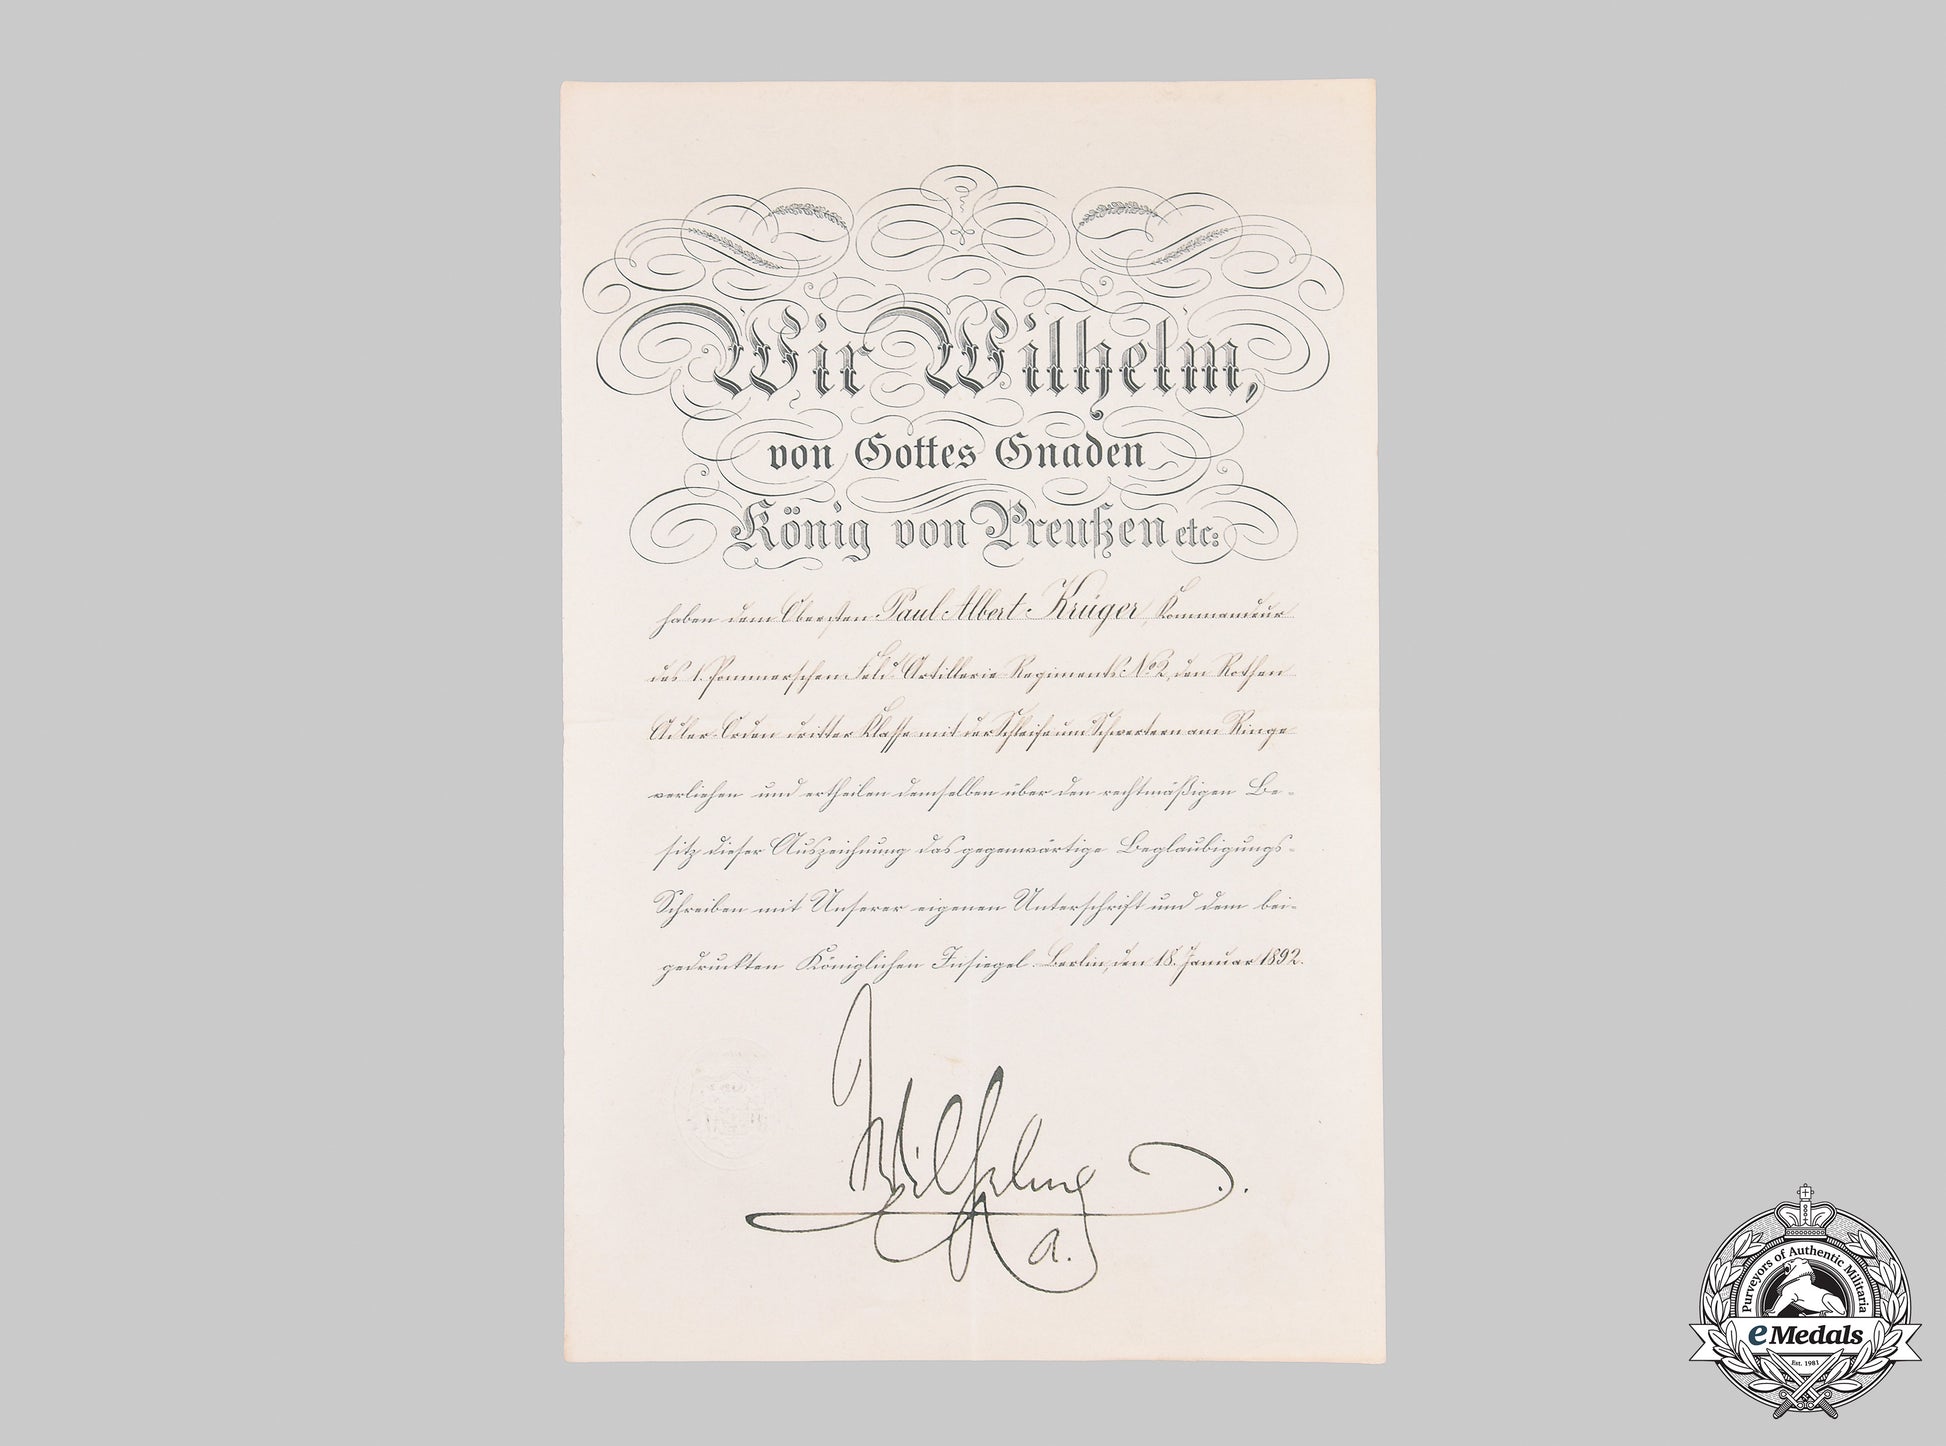 Wir Wilhelm,
von Gottes Gnaden
König von Preußen etc:
haben dem Obersten Paul Albert Krüger, Kommandeur
des 1. Pommerschen Feld-Artillerie-Regiments No 2, den Rothen
Adler-Orden dritter Klasse mit der Schleife und Schwertern am Ringe
verliehen und ertheilen demselben über den rechtmäßigen Be-
sitz dieser Auszeichnung das gegenwärtige Beglaubigungs-
Schreiben mit Unserer eigenen Unterschrift und dem bei-
gedruckten Königlichen Insiegel. Berlin, den 18. Januar 1892.
Wilhelm
R.
Purveyors of Authentic Militaria
eMedals
Est. 1983